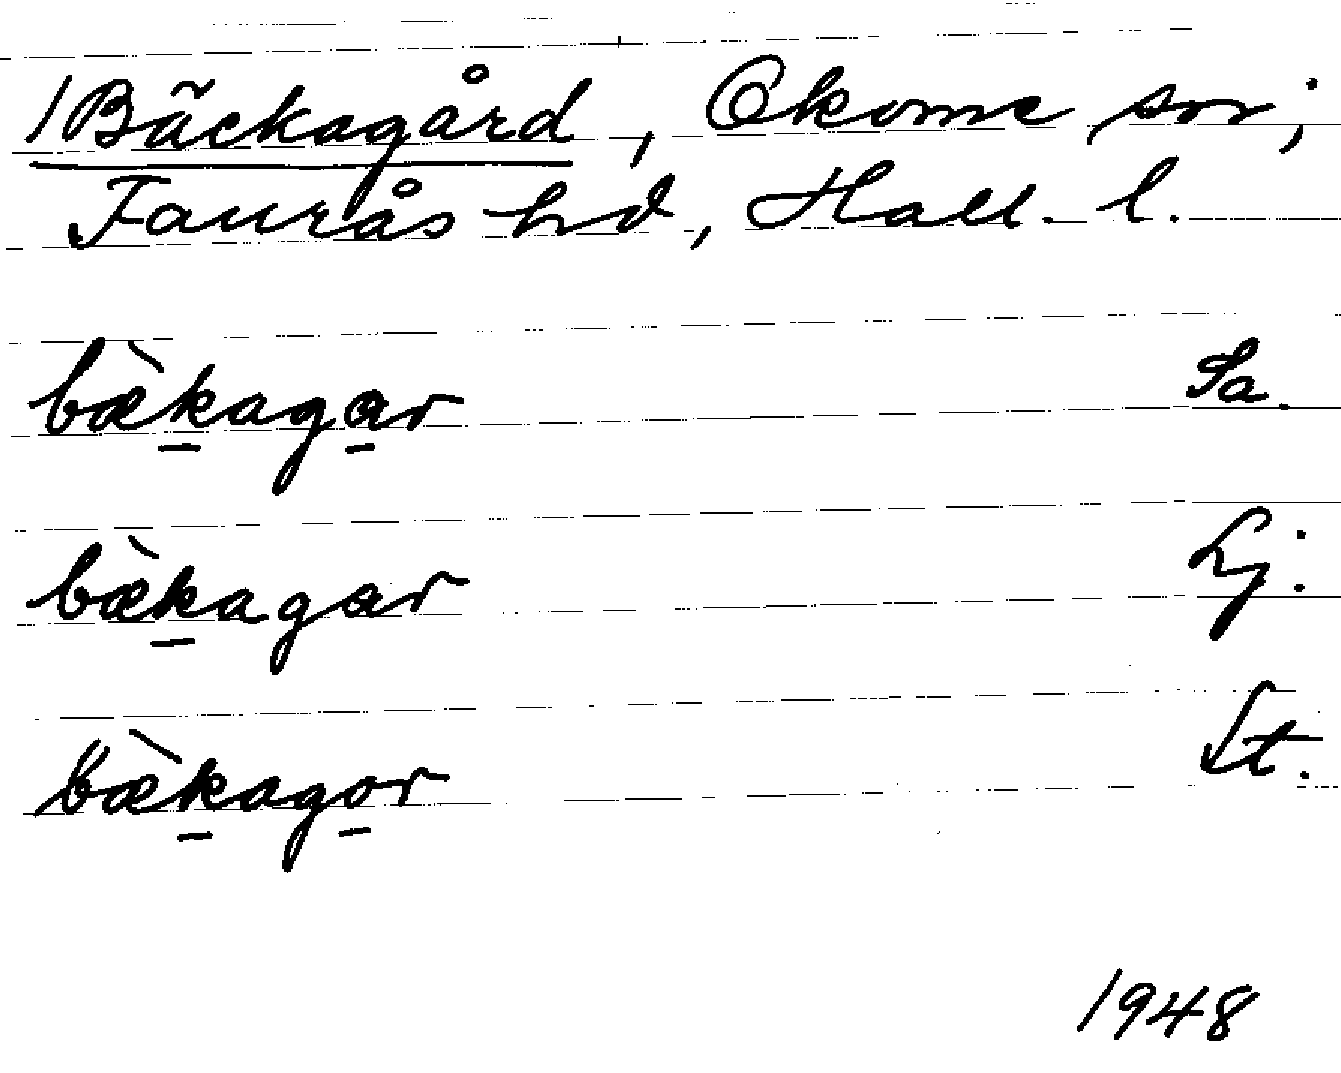 /Bäckagård, Okome sn,
Faurås hd, Hall. l.
bæ̀kagar Sa.
bæ̀kagar Lj.
bæ̀kagor St.
1948